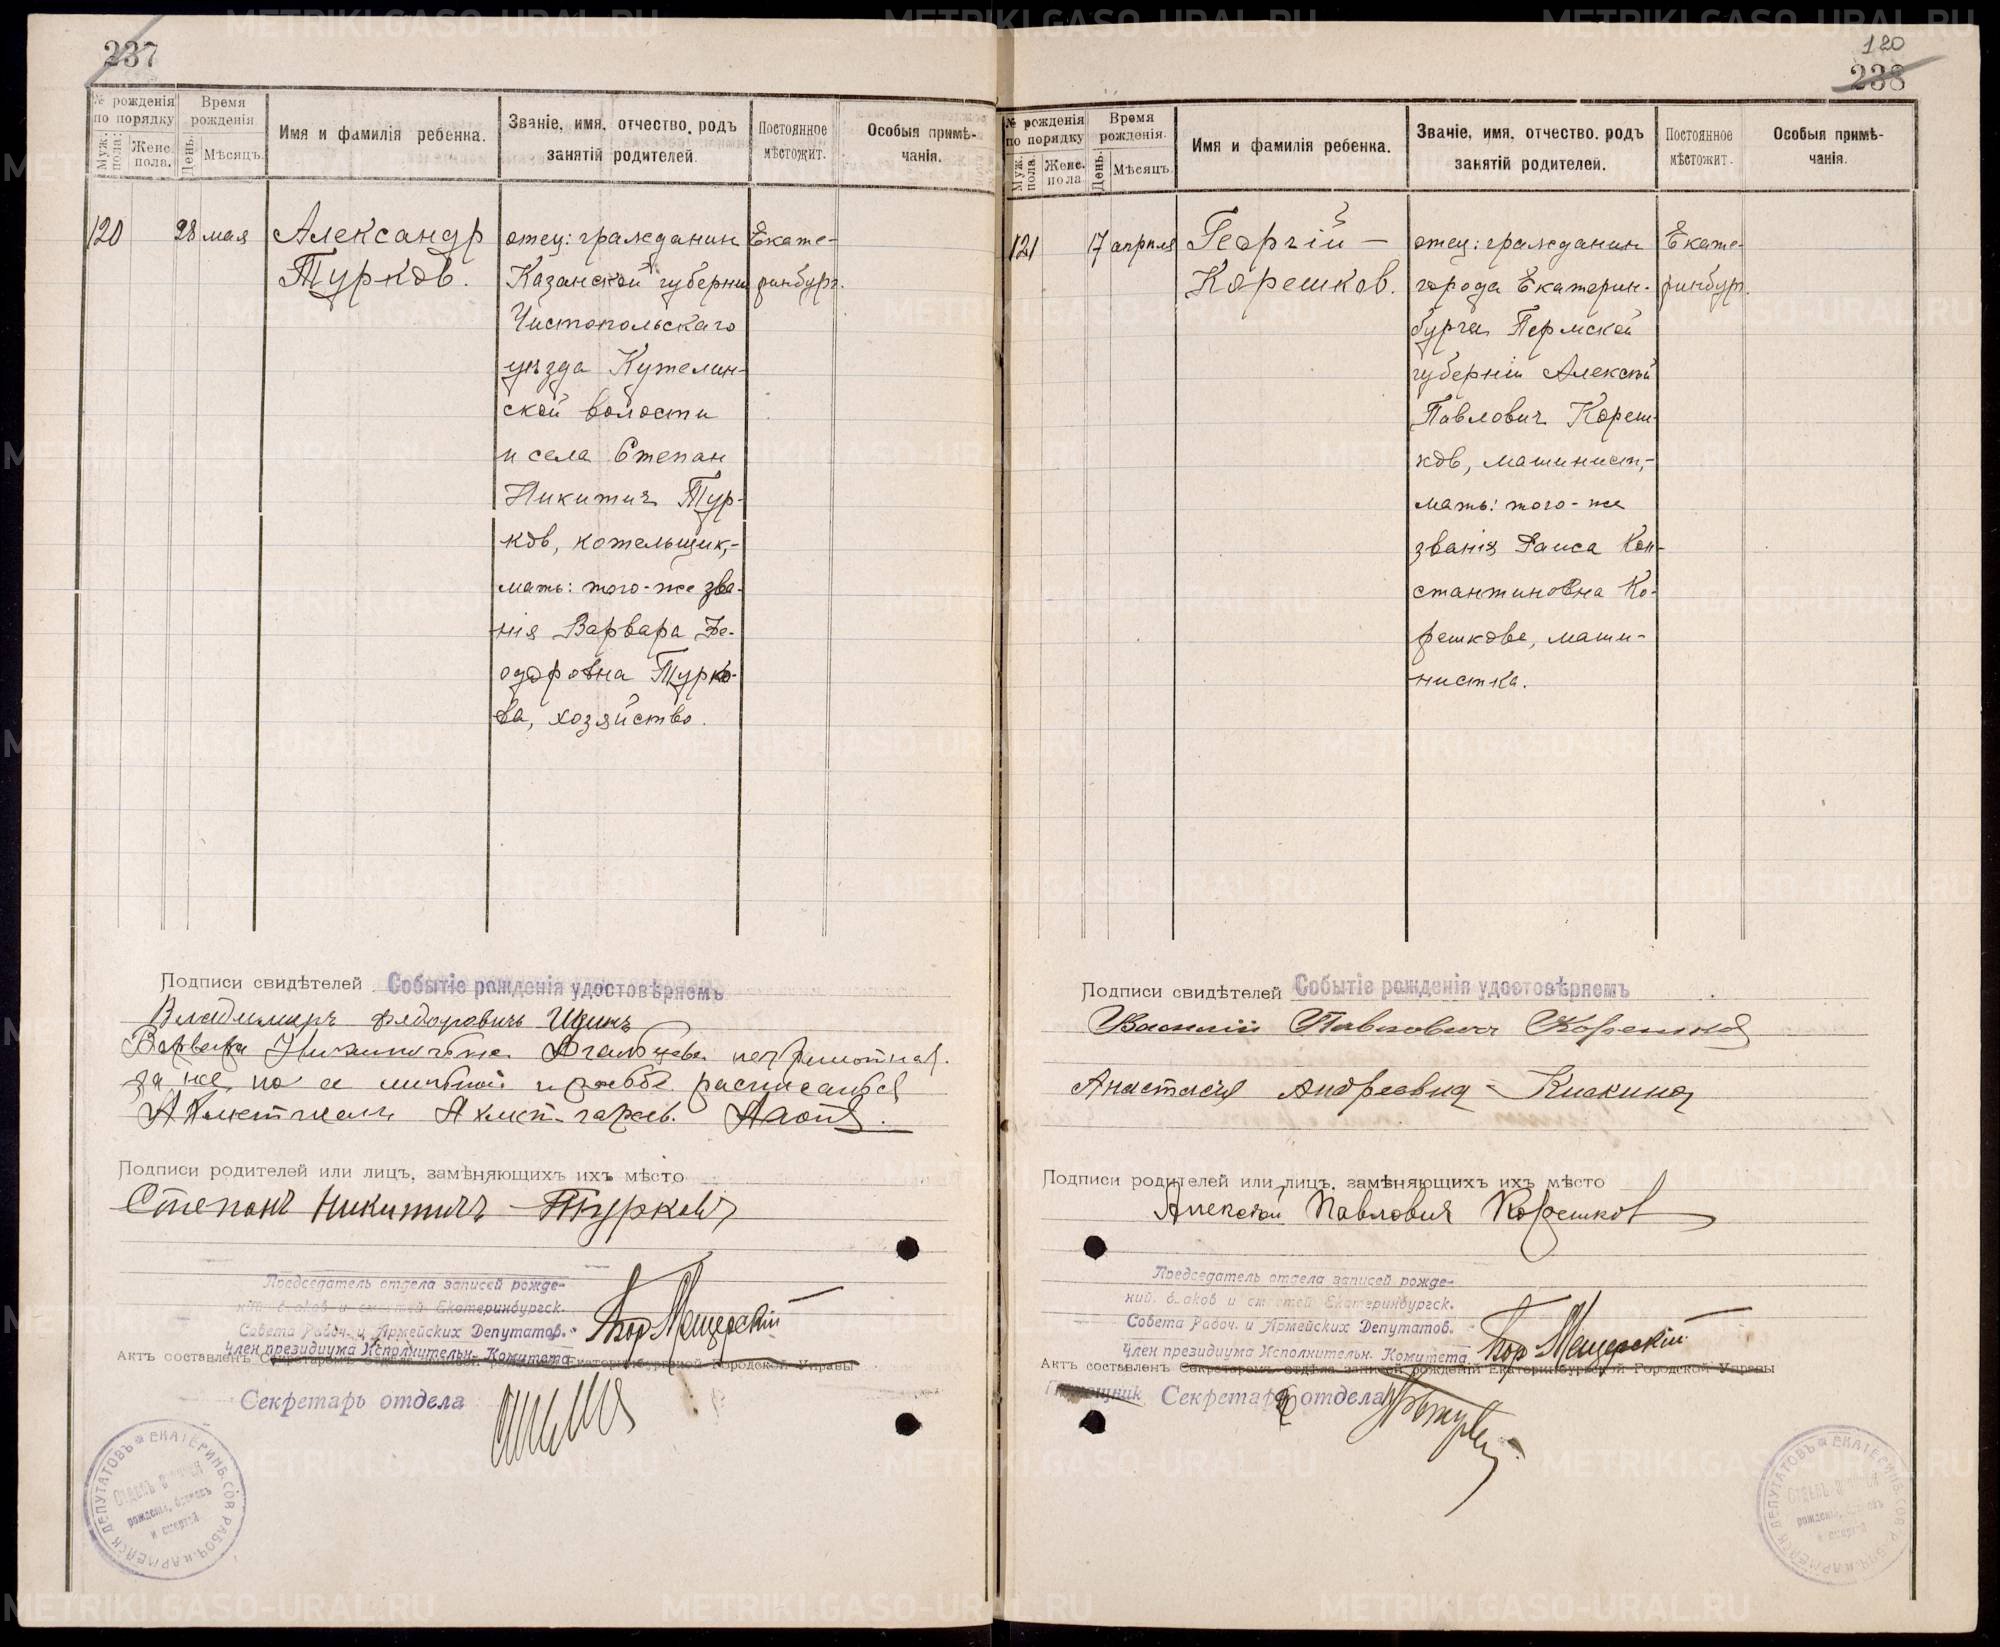 237
№ рожденія по порядку
Муж. пола.
Женс. пола.
Время рожденія
День.
Мѣсяцъ.
Имя и фамилія ребенка.
Званіе, имя, отчество, родъ
занятій родителей.
Постоянное
мѣстожит.
Особыя примѣ-
чанія.
120
28 мая
Александр
Турков.
отец: гражданин
Казанской губерни
Чистопольскаго
уѣзда Кутелин-
ской волости
и села Степан
Никитич Тур-
ков, котельщик,-
мать: того-же зва-
нія Варвара Фе-
одоровна Турко-
ва, хозяйство.
Екате-
ринбург.
Подписи свидѣтелей
Событіе рожденія удостовѣряемъ
Владимиръ Федоровичь
Варвара неграмотная.
за нее по ея личной прозьбе расписался
Подписи родителей или лицъ, замѣняющихъ ихъ мѣсто
Степанъ Никитичъ Турковъ
Председатель отдела записей рожде-
ний, браков и смертей Екатеринбургск.
Совета Рабоч. и Армейских Депутатов.
Член президиума Исполнительн. Комитета
Мещерскій
Актъ составленъ Секретаремъ отдѣла записей рожденій Екатеринбургской Городской Управы
Секретарь отдела
ЕКАТЕРИНБ. СОВ. РАБОЧ. и АРМЕЙСК. ДЕПУТАТОВЪ
Отделъ записей
рожденія, браковъ
и смертей
120
238
№ рожденія по порядку
Муж. пола.
Женс. пола
Время рожденія.
День.
Мѣсяцъ.
Имя и фамилія ребенка.
Званіе, имя, отчество, родъ
занятій родителей.
Постоянное
мѣстожит.
Особыя примѣ-
чанія.
121
17 апреля
Георгій -
Корешков.
отец: гражданин
города Екатерин-
бурга Пермской
губерніи Алексѣй
Павлович Кореш-
ков, машинист,-
мать: того-же
званія Раиса Кон-
стантиновна Ко-
решкова, маши-
нистка.
Екате-
ринбург.
Подписи свидѣтелей
Событіе рожденія удостовѣряемъ
Василій Павлович Корешков
Анастасия Андреевна Кискина
Подписи родителей или лицъ, замѣняющихъ ихъ мѣсто
Алексѣй Павлович Корешков
Председатель отдела записей рожде-
ний, браков и смертей Екатеринбургск.
Совета Рабоч. и Армейских Депутатов.
Член президиума Исполнительн. Комитета
Мещерскій
Актъ составленъ Секретаремъ отдѣла записей рожденій Екатеринбургской Городской Управы
Помощник Секретаря отдела
ЕКАТЕРИНБ. СОВ. РАБОЧ. и АРМЕЙСК. ДЕПУТАТОВЪ
Отделъ записей
рожденія, браковъ
и смертей
METRIKI.GASO-URAL.RU